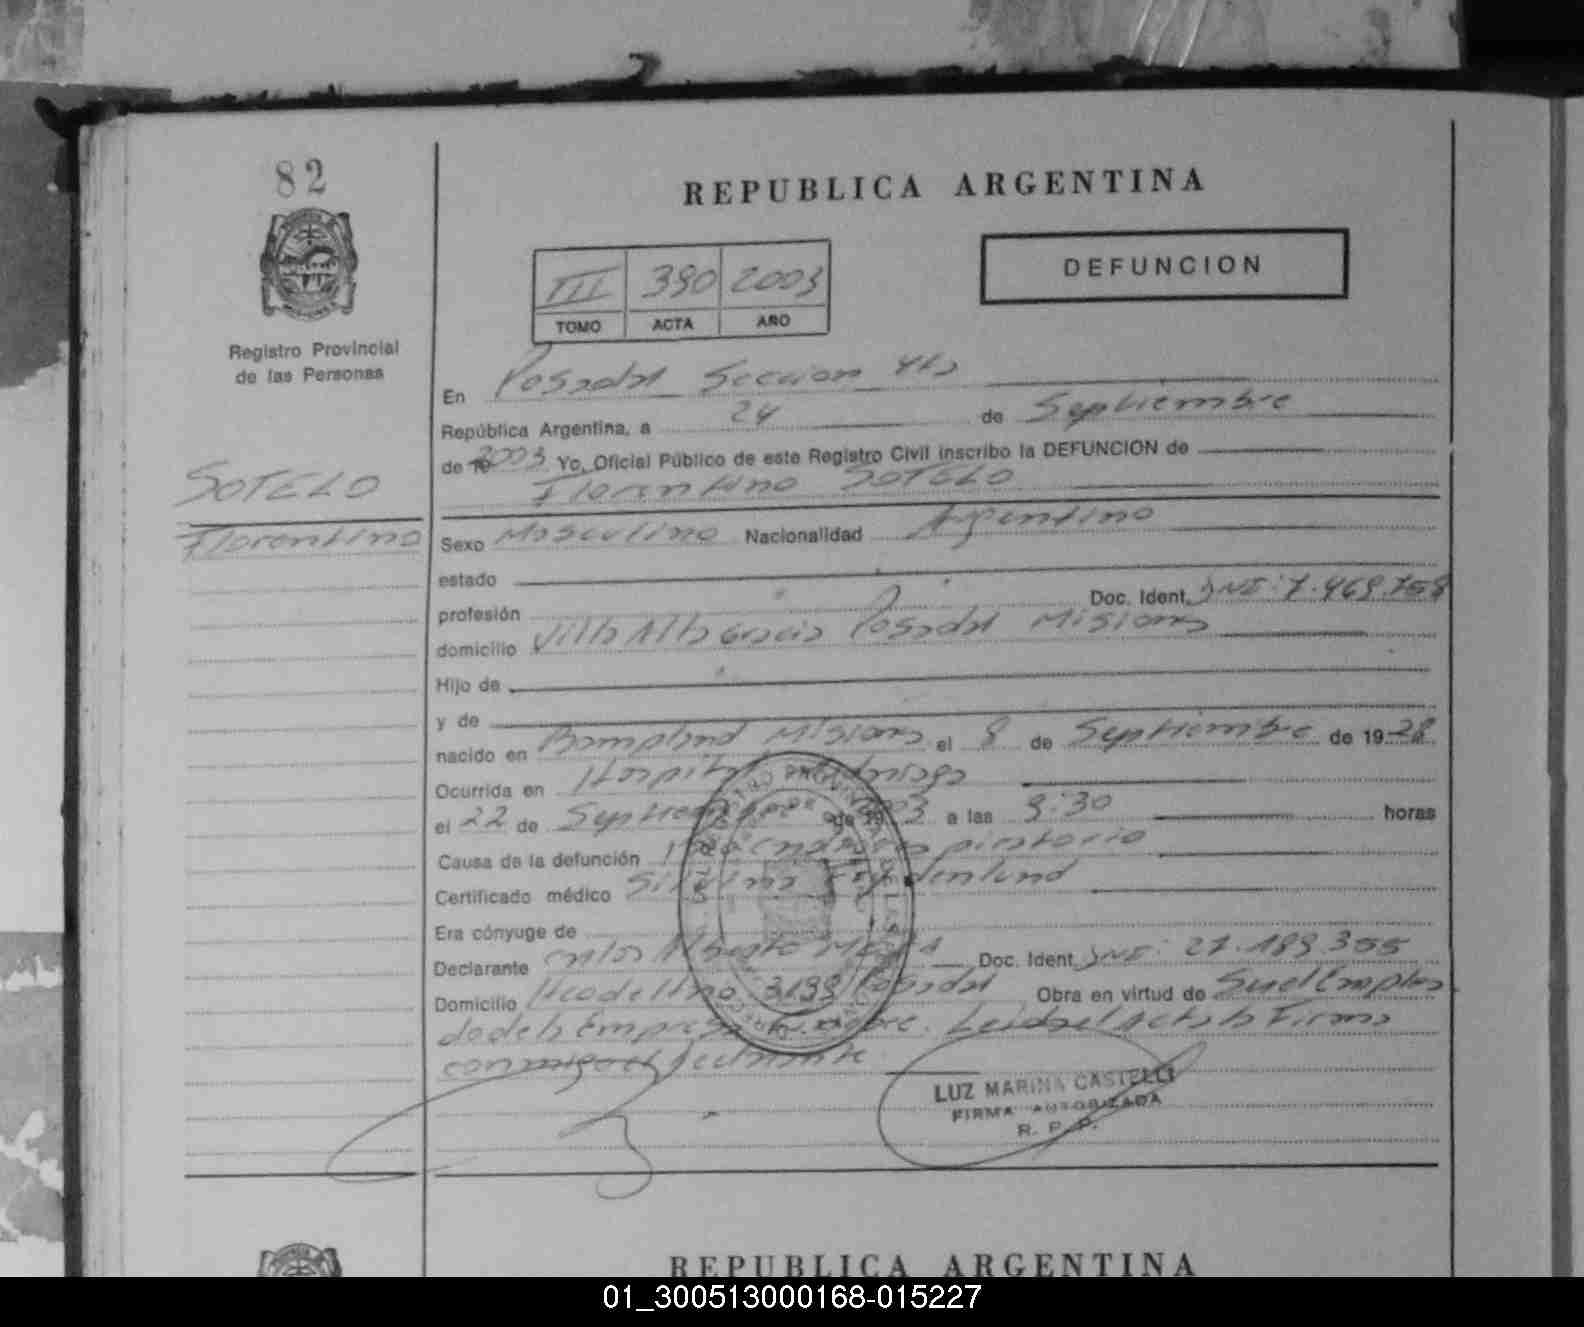 82
REPUBLICA ARGENTINA
DEFUNCION
III 390 2003
TOMO ACTA AÑO
Registro Provincial
de las Personas
En Posadas Seccion 4ta
República Argentina, a 24 de Septiembre
de 19 2003 Yo, Oficial Público de este Registro Civil inscribo la DEFUNCION de
Florentino SOTELO
SOTELO
Florentino
Sexo Masculino Nacionalidad Argentino
estado
profesión Doc. Ident. DNI: 7.469.758
domicilio Villa Alta Gracia Posadas Misiones
Hijo de
y de
nacido en Bompland Misiones el 8 de Septiembre de 1928
Ocurrida en Hospital
el 22 de Septiembre de 2003 a las 9:30 horas
Causa de la defunción
Certificado médico
Era cónyuge de
Declarante Carlos Alberto Doc. Ident. DNI: 21.189.355
Domicilio 3199 Posadas Obra en virtud de Ser el Emplea
do de la Empresa Leida el Acta la Firma
conmigo el declarante
LUZ MARINA CASTELLI
FIRMA AUTORIZADA
R. P. P.
REPUBLICA ARGENTINA
01_300513000168-015227